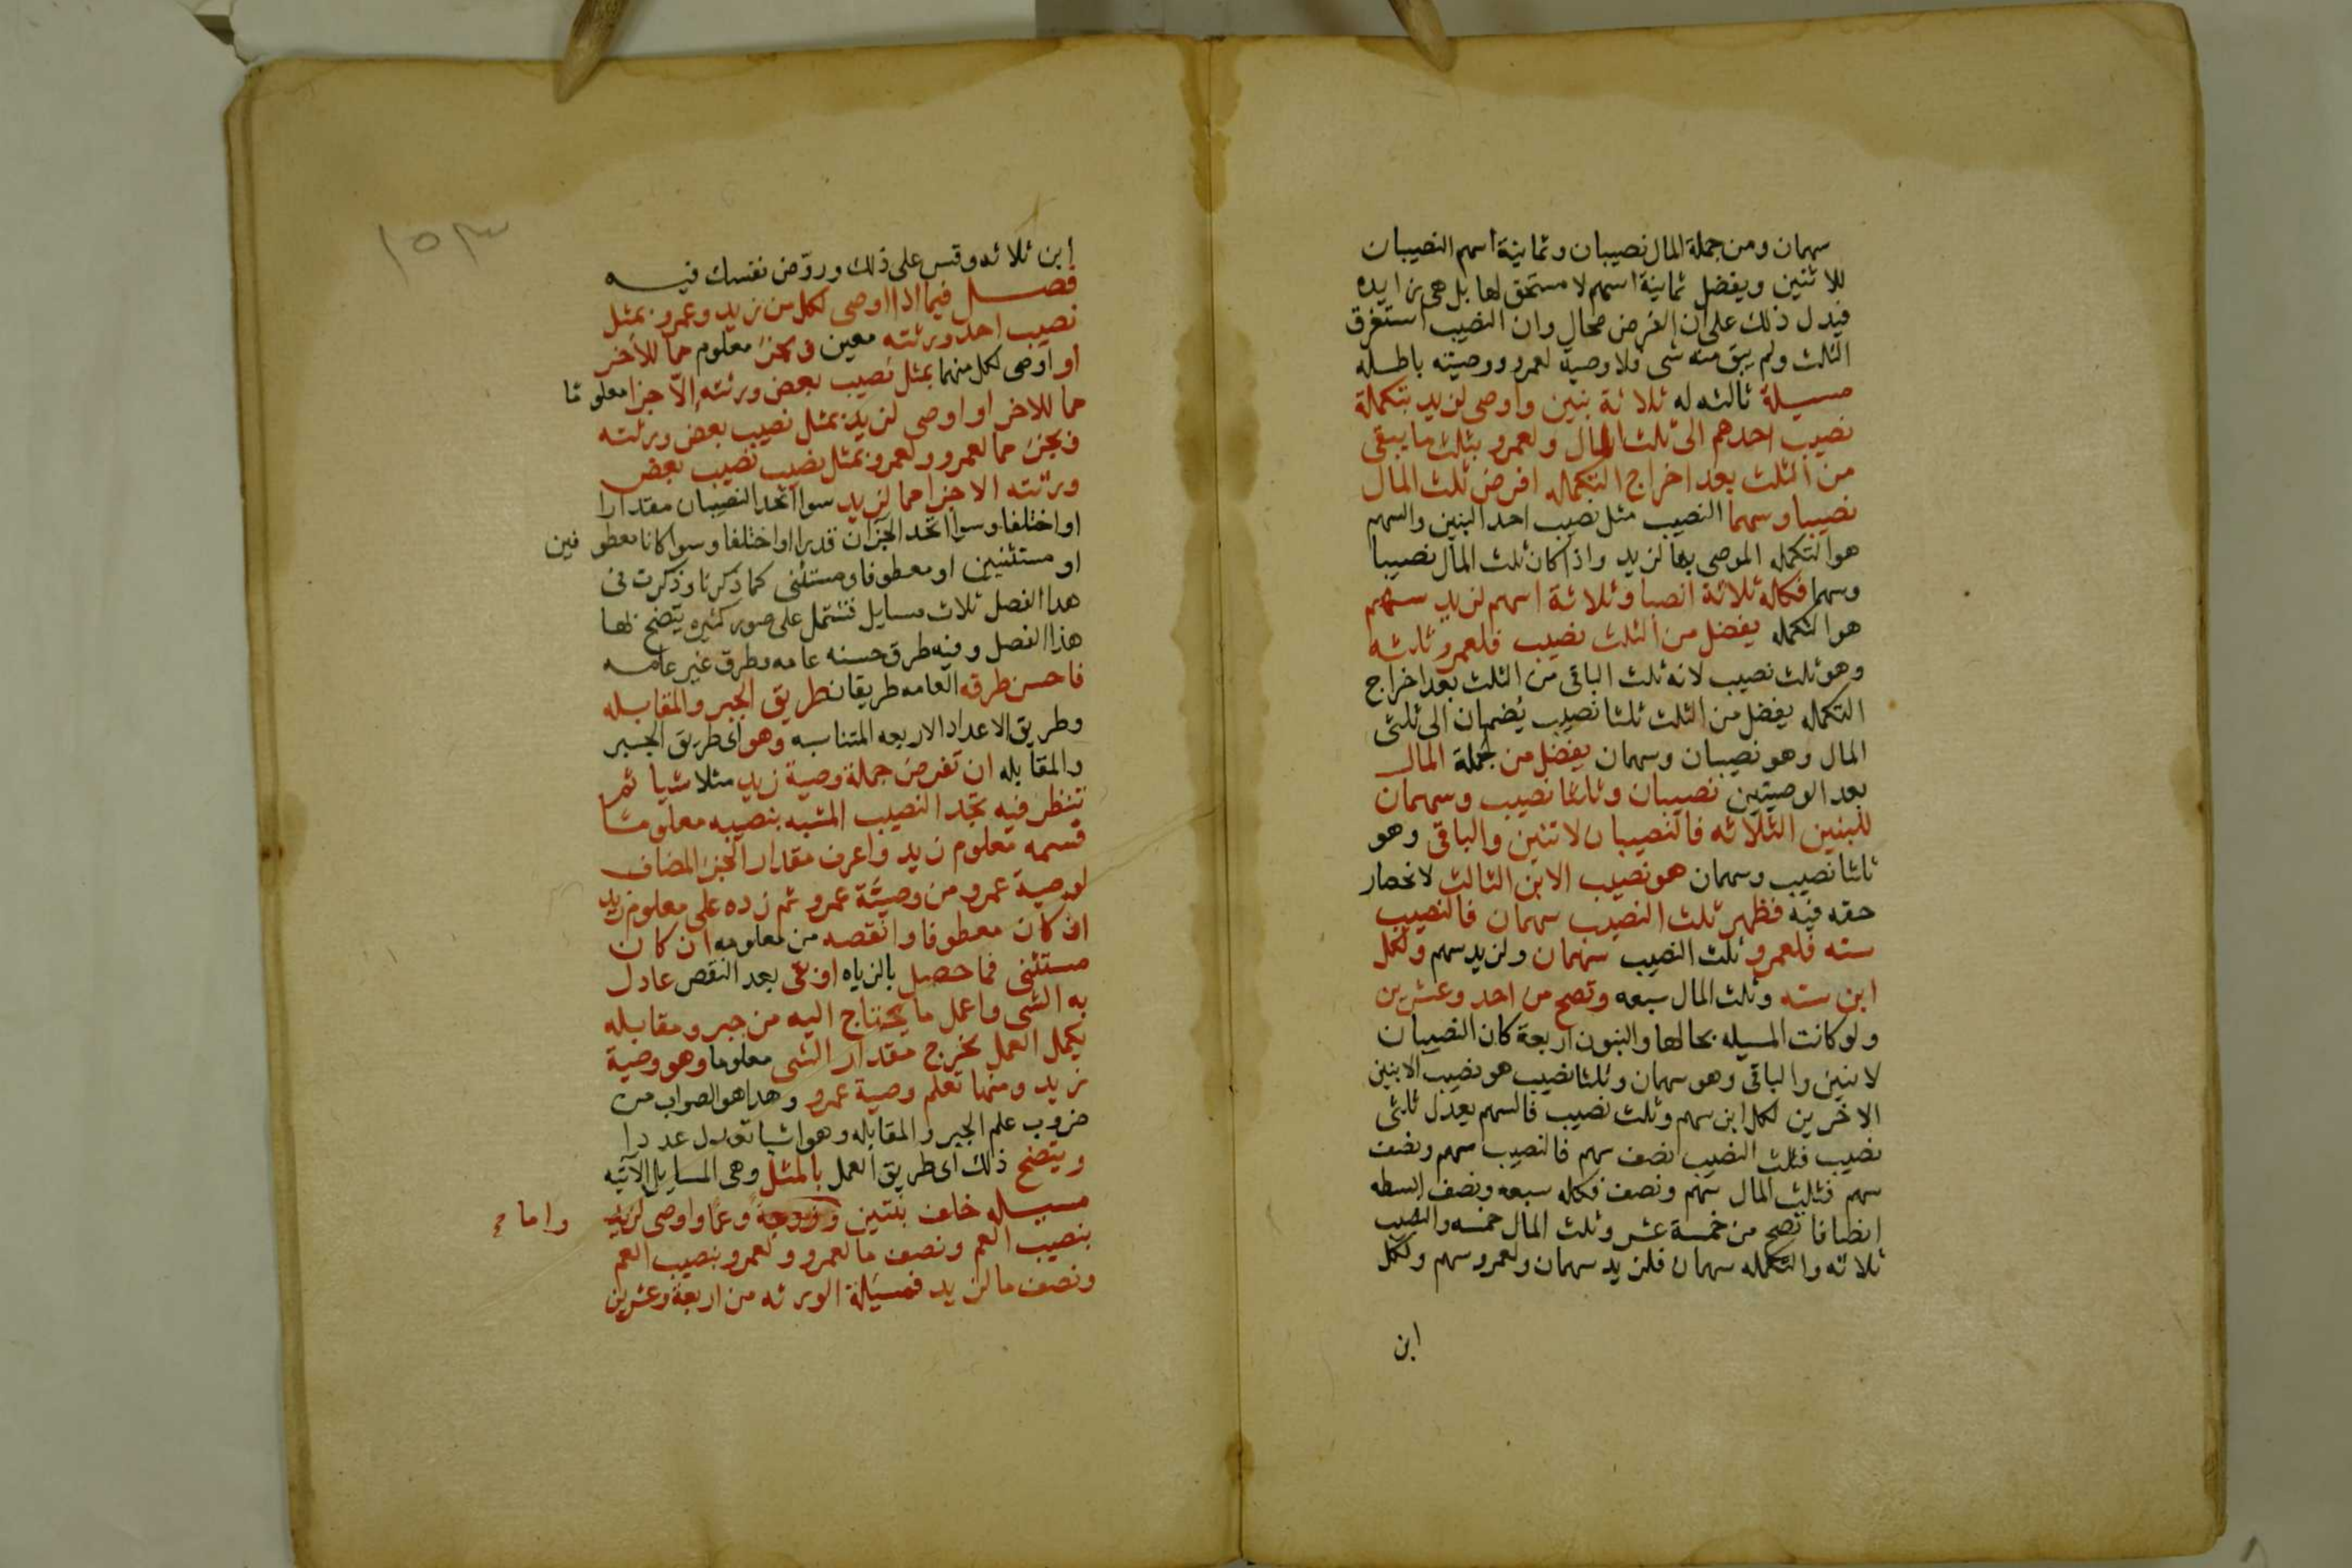 سهمان ومن جملة المال نصيبان وثمانية اسهم النصيبان
للاثنين ويفضل ثمانية اسهم لا مستحق لها بل هى زايده
فيدل ذلك على ان الفرض محال وان النصيب استغرق
الثلث ولم يبق منه شى فلا وصية لعمرو ووصيته باطله
مسيلة ثالثه له ثلاثة بنين واوصى لزيد بتكملة
نصيب احدهم الى ثلث المال ولعمرو بثلث ما يبقى
من الثلث بعد اخراج التكمله افرض ثلث المال
نصيبا وسهما النصيب مثل نصيب احد البنين والسهم
هو التكمله الموصى بها لزيد واذا كان ثلث المال نصيبا
وسهما فكاله ثلاثة انصبا وثلاثة اسهم لزيد سهم
هو التكمله يفضل من الثلث نصيب فلعمرو ثلثه
وهو ثلث نصيب لانه ثلث الباقى من الثلث بعد اخراج
التكمله يفضل من الثلث ثلثا نصيب يضمان الى ثلثى
المال وهو نصيبان وسهمان يفضل من جملة المال
بعد الوصيتين نصيبان وثلثا نصيب وسهمان
للبنين الثلاثه فالنصيبان لاثنين والباقى وهو
ثلثا نصيب وسهمان هو نصيب الابن الثالث لانحصار
حقه فيه فظهر ثلث النصيب سهمان فالنصيب
سته فلعمرو ثلث النصيب سهمان ولزيد سهم ولكل
ابن سته وثلث المال سبعه وتصح من احد وعشرين
ولو كانت المسيله بحالها والبنون اربعة كان النصيبان
لابنين والباقى وهو سهمان وثلثا نصيب هو نصيب الابنين
الاخرين لكل ابن سهم وثلث نصيب فالسهم يعدل ثلثى
نصيب فثلث النصيب نصف سهم فالنصيب سهم ونصف
سهم فثلث المال سهم ونصف فكله سبعه ونصف ابسطه
انصافا تصح من خمسة عشر وثلث المال خمسه والنصيب
ثلاثه والتكمله سهمان فلزيد سهمان ولعمرو سهم ولكل
ابن
١٥٣
ابن ثلاثه وقس على ذلك وروّض نفسك فيه
فصل فيما اذا اوصى لكل من زيد وعمرو بمثل
نصيب احد ورثته معين وبجزء معلوم مما للآخر
او اوصى لكل منهما بمثل نصيب بعض ورثته إلا جزا معلوما
مما للاخر او اوصى لزيد بمثل نصيب بعض ورثته
وبجزء مما لعمرو ولعمرو بمثل نصيب بعض
ورثته الا جزا مما لزيد سوا اتحد النصيبان مقدارا
او اختلفا وسوا اتحد الجزان قدرا او اختلفا وسوا كانا معطوفين
او مستثنيين او معطوفا ومستثنى كما ذكرنا وذكرت فى
هذا الفصل ثلاث مسايل تشتمل على صور كثيره يتضح بها
هذا الفصل وفيه طرق حسنه عامه وطرق غير عامه
فاحسن طرقه العامه طريقان طريق الجبر والمقابله
وطريق الاعداد الاربعه المتناسبه وهو اى طريق الجبر
والمقابله ان تفرض جملة وصية زيد مثلا شيا ثم
تنظر فيه تجد النصيب المشبه بنصيبه معلوما
قسمه معلوم زيد واعرف مقدار الجزء المضاف
لوصية عمرو من وصيّة عمرو ثم زده على معلوم زيد
ان كان معطوفا وانقصه من معلومه ان كان
مستثنى فما حصل بالزياده او بقى بعد النقص عادل
به الشى واعمل ما يحتاج اليه من جبر ومقابله
يكمل العمل يخرج مقدار الشى معلوما وهو وصية
زيد ومنها تعلم وصية عمرو وهذا هو الصواب من
ضروب علم الجبر والمقابله وهو اشيا تعدل عددا
ويتضح ذلك اى طريق العمل بالمثل وهى المسايل الآتيه
مسيله خلف بنتين وزوجة وعمّا واوصى لزيد
واما صح
بنصيب العم ونصف ما لعمرو ولعمرو بنصيب العم
ونصف ما لزيد فمسيلة الورثه من اربعة وعشرين